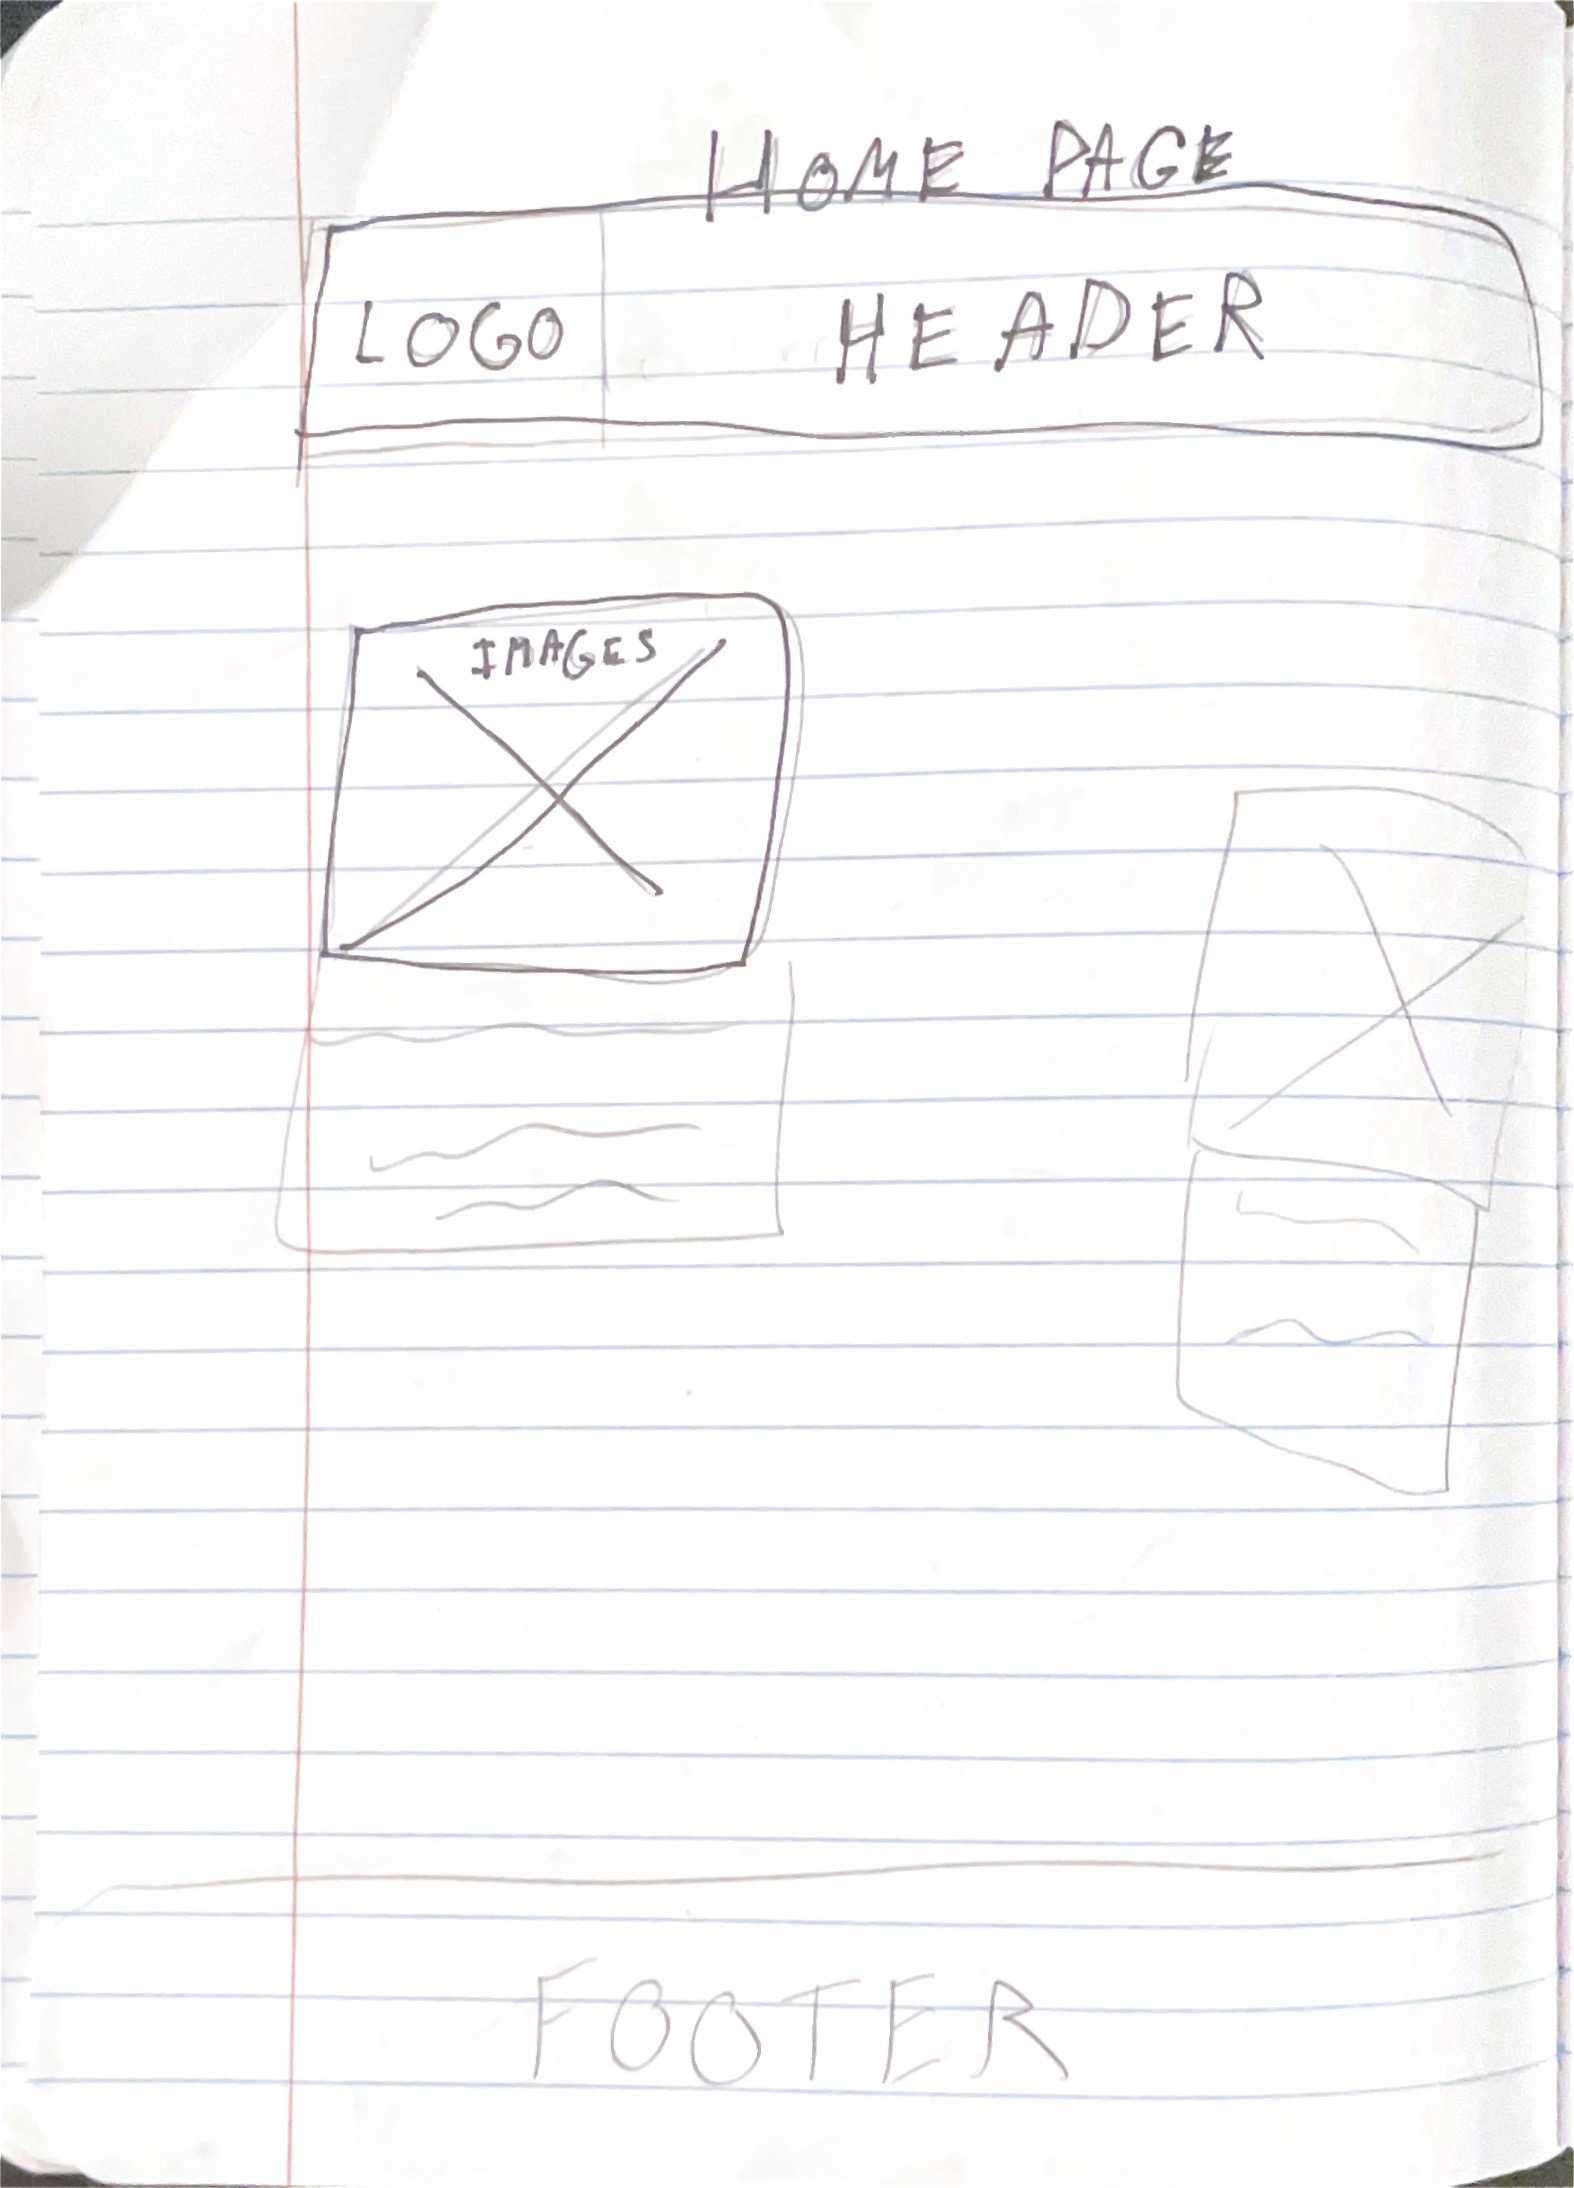 HOME PAGE
LOGO HEADER
IMAGES
FOOTER